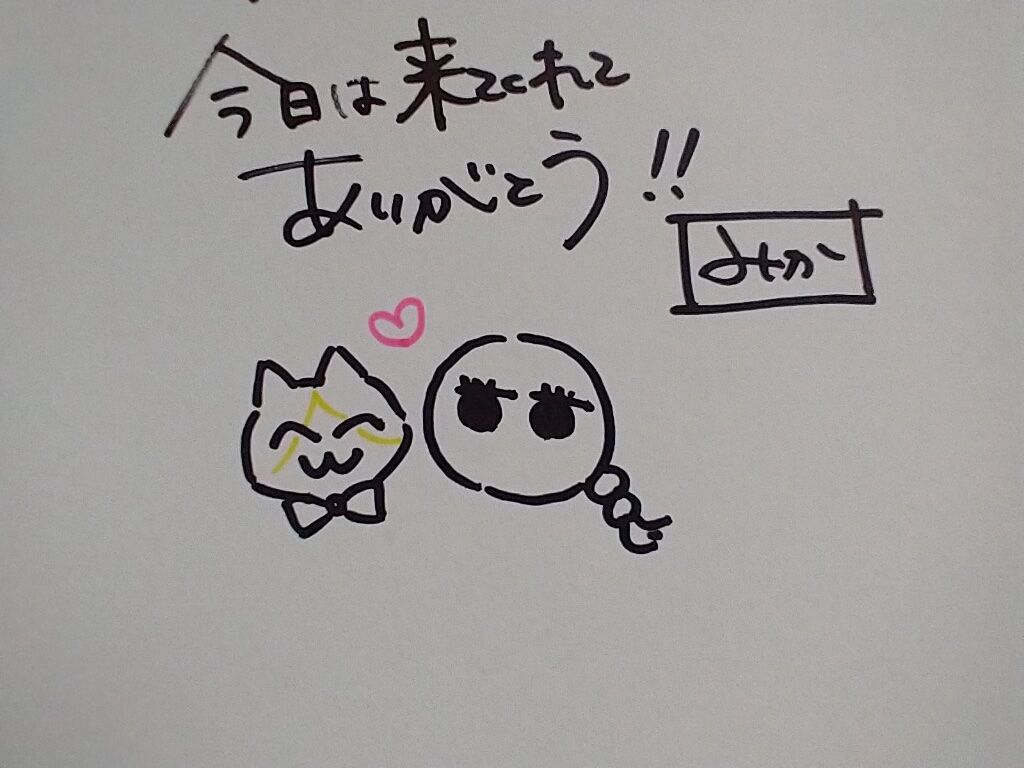 今日は来てくれて
ありがとう!!
みか